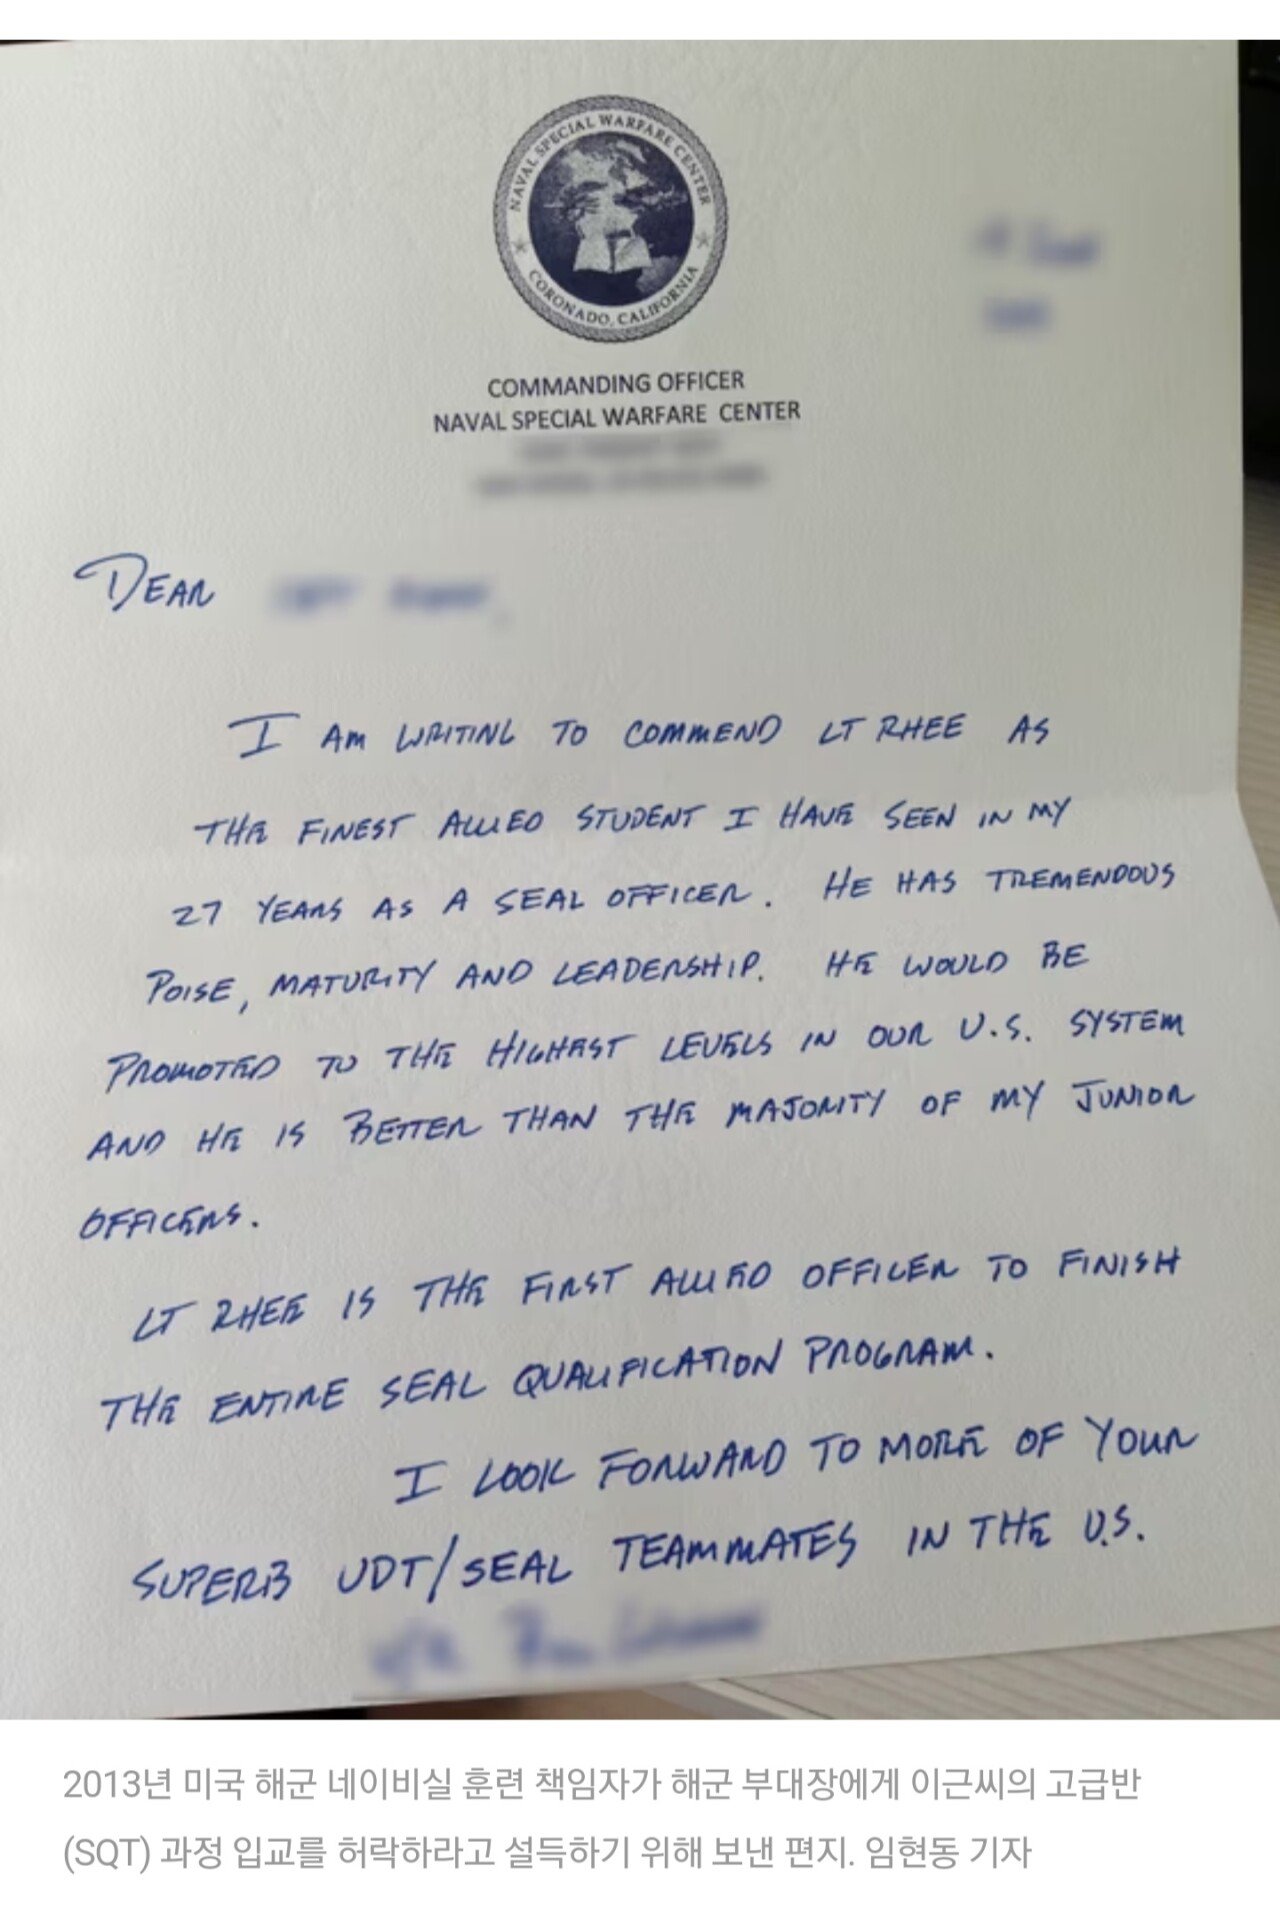 NAVAL SPECIAL WARFARE CENTER
CORONADO, CALIFORNIA
COMMANDING OFFICER
NAVAL SPECIAL WARFARE CENTER
DEAR
I AM WRITING TO COMMEND LT RHEE AS
THE FINEST ALLIED STUDENT I HAVE SEEN IN MY
27 YEARS AS A SEAL OFFICER. HE HAS TREMENDOUS
POISE, MATURITY AND LEADERSHIP. HE WOULD BE
PROMOTED TO THE HIGHEST LEVELS IN OUR U.S. SYSTEM
AND HE IS BETTER THAN THE MAJORITY OF MY JUNIOR
OFFICERS.
LT RHEE IS THE FIRST ALLIED OFFICER TO FINISH
THE ENTIRE SEAL QUALIFICATION PROGRAM.
I LOOK FORWARD TO MORE OF YOUR
SUPERB UDT/SEAL TEAMMATES IN THE U.S.
2013년 미국 해군 네이비실 훈련 책임자가 해군 부대장에게 이근씨의 고급반
(SQT) 과정 입교를 허락하라고 설득하기 위해 보낸 편지. 임현동 기자